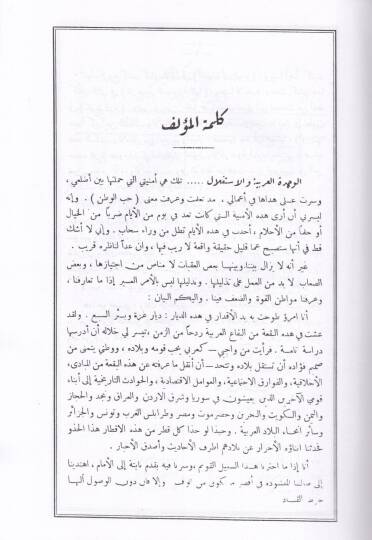 كلمة المؤلف
الوحدة العربية والاستقلال ..... تلك هي أمنيتي التي حملتها بين أضلعي ،
وسرت على هداها في أعمالي . مذ تعلمت وعرفت معنى ( حب الوطن ) . وإنه
ليسرني أن أرى هذه الأمنية التي كانت تعد في يوم من الأيام ضرباً من الخيال
أو حلماً من الأحلام ، أخذت في هذه الأيام تطل من وراء سحاب . وإني لا أشك
قط في أنها ستصبح عما قليل حقيقة واقعة لا ريب فيها ، وإن غداً لناظره قريب .
غير أنه لا يزال بيننا وبينها بعض العقبات لا مناص من اجتيازها ، وبعض
الصعاب لا بد من العمل على تذليلها . وتذليلها ليس بالأمر العسير إذا ما تعارفنا ،
وعرفنا مواطن القوة والضعف فينا . وإليكم البيان :
أنا امرؤ طوحت به يد الأقدار في هذه الديار : ديار عزة وبئر السبع . ولقد
عشت في هذه البقعة من البقاع العربية ردحاً من الزمن ، تيسر لي خلاله أن أدرسها
دراسة تامة . فرأيت من واجبي – كعربي يحب قومه وبلاده ، ووطني يتمنى من
صميم فؤاده أن تستقل بلاده وتتحد – أن أنقل ما عرفته عن هذه البقعة من المبادئ
الأخلاقية ، والفوارق الاجتماعية ، والعوامل الاقتصادية ، والحوادث التاريخية إلى أبناء
قومي الآخرين الذين يعيشون في سوريا وشرق الأردن والعراق ونجد والحجاز
واليمن والكويت والبحرين وحضرموت ومصر وطرابلس الغرب وتونس والجزائر
وسائر أنحاء البلاد العربية . وحبذا لو حذا كل قطر من هذه الأقطار هذا الحذو
فحدثنا أبناؤه الأحرار عن بلادهم أطرف الأحاديث وأصدق الأخبار .
أنا إذا ما اخترنا هذا السبيل القويم ، وسرنا فيه بقدم ثابتة إلى الأمام ، اهتدينا
إلى ضالتنا المنشودة في أقصر ما يكون من الوقت . وإلا فإن دون الوصول إليها